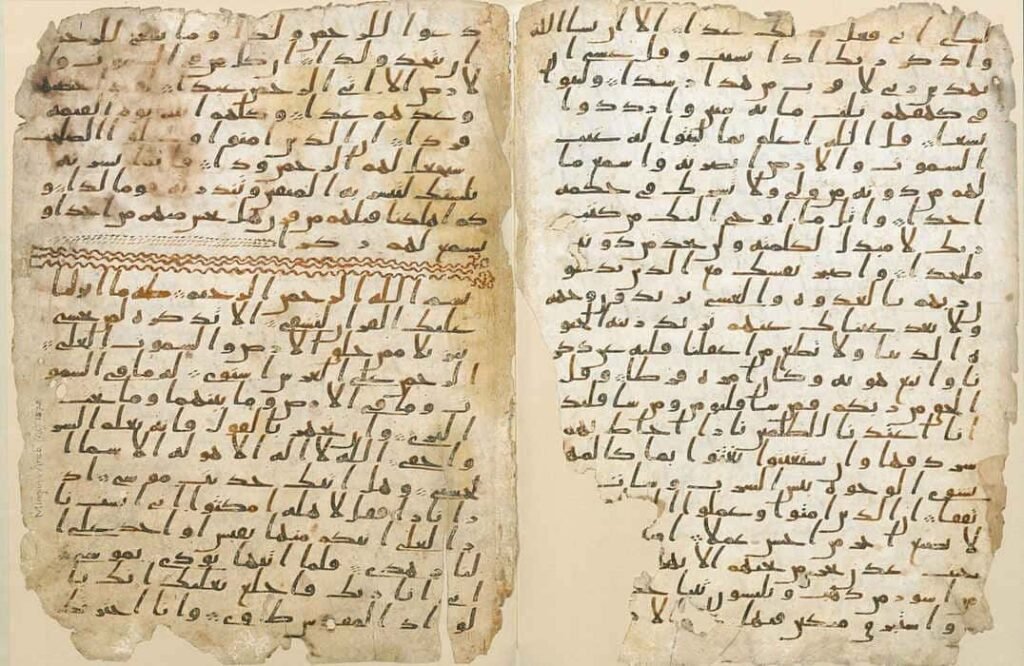 انى فعل ذلك غدا الا ان يشا الله
واذكر ربك اذا نسيت وقل عسى ان
يهدين ربى لاقرب من هذا رشدا ولبثوا
فى كهفهم ثلث مايه سنين وازدادوا
تسعا قل الله اعلم بما لبثوا له غيب
السموت والارض ابصر به واسمع ما
لهم من دونه من ولى ولا يشرك فى حكمه
احدا واتل ما اوحى اليك من كتب
ربك لا مبدل لكلمته ولن تجد من دونه
ملتحدا واصبر نفسك مع الذين يدعو
ن ربهم بالغدوه والعشى يريدون وجهه
ولا تعد عيناك عنهم تريد زينه الحيو
ه الدنيا ولا تطع من اغفلنا قلبه عن ذكر
نا واتبع هويه وكان امره فرطا وقل
الحق من ربكم فمن شا فليومن ومن شا فليكفر
انا اعتدنا للظلمين نارا احاط بهم
سردقها وان يستغيثوا يغثوا بما كالمهل
يشوى الوجوه بئس الشرب وسات
مرتفقا ان الذين امنوا وعملوا ا
لا نضيع اجر من احسن عملا
جنت عدن تجرى من تحتهم الانهر
من اسور من ذهب ويلبسون ثيابا
واستبرق متكين فيها
دعوا للرحمن ولدا وما ينبغى للرحمن
ان يتخذ ولدا ان كل من فى السموت وا
لارض الا اتى الرحمن عبدا لقد احصيهم
وعدهم عدا وكلهم اتيه يوم القيمه
فردا ان الذين امنوا وعملوا الصلحت
سيجعل لهم الرحمن ودا فانما يسرنه
بلسنك لتبشر به المتقين وتنذر به قوما لدا و
كم اهلكنا قبلهم من قرن هل تحس منهم من احد او
تسمع لهم ركزا
بسم الله الرحمن الرحيم طه ما انزلنا
عليك القران لتشقى الا تذكره لمن يخشى
تنزيلا ممن خلق الارض والسموت العلى
الرحمن على العرش استوى له ما فى السمو
ت وما فى الارض وما بينهما وما تحت
الثرى وان تجهر بالقول فانه يعلم السر
واخفى الله لا اله الا هو له الاسما ا
لحسنى وهل اتيك حديث موسى اذ
را نارا فقل لاهله امكثوا انى انست نا
را لعلى اتيكم منها بقبس او اجد على ا
لنار هدى فلما اتيها نودى يموسى
انى انا ربك فاخلع نعليك انك با
لواد المقدس طوى وانا اخترتك